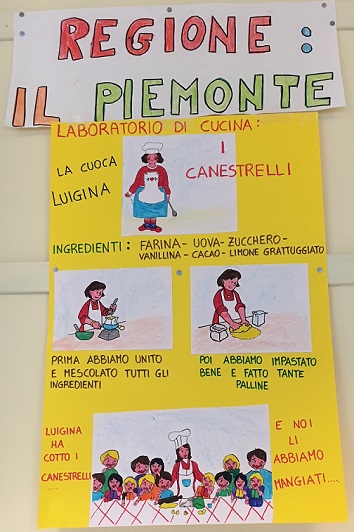 REGIONE:
IL PIEMONTE
LABORATORIO DI CUCINA:
LA CUOCA
LUIGINA
I
CANESTRELLI
INGREDIENTI: FARINA- UOVA- ZUCCHERO-
VANILLINA - CACAO - LIMONE GRATTUGGIATO
PRIMA ABBIAMO UNITO
E MESCOLATO TUTTI GLI
INGREDIENTI
POI ABBIAMO IMPASTATO
BENE E FATTO TANTE
PALLINE
LUIGINA
HA
COTTO I
CANESTRELLI
.....
E NOI
LI
ABBIAMO
MANGIATI....